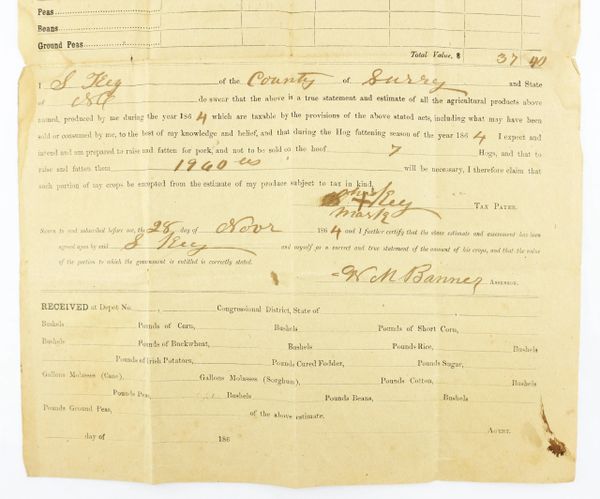 Peas
Beans
Ground Peas
Total Value, $ 37 40
I S Key of the County of Surry and State
of NC do swear that the above is a true statement and estimate of all the agricultural products above
named, produced by me during the year 1864 which are taxable by the provisions of the above stated acts, including what may have been
sold or consumed by me, to the best of my knowledge and belief, and that during the Hog fattening season of the year 1864 I expect and
intend and am prepared to raise and fatten for pork, and not to be sold on the hoof 7 Hogs, and that to
raise and fatten them 1960 will be necessary, I therefore claim that
such portion of my crops be exempted from the estimate of my produce subject to tax in kind.
S his + Key
mark
TAX PAYER.
Sworn to and subscribed before me, the 28 day of Novr 1864 and I further certify that the above estimate and assessment has been
agreed upon by said S Key and myself as a correct and true statement of the amount of his crops, and that the value
of the portion to which the government is entitled is correctly stated.
W M Banner ASSESSOR.
RECEIVED at Depôt No. Congressional District, State of
Bushels Pounds of Corn, Bushels Pounds of Short Corn,
Bushels Pounds of Buckwheat, Bushels Pounds Rice, Bushels
Pounds of Irish Potatoes, Pounds Cured Fodder, Pounds Sugar,
Gallons Molasses (Cane), Gallons Molasses (Sorghum), Pounds Cotton, Bushels
Pounds Peas, Bushels Pounds Beans, Bushels
Pounds Ground Peas, of the above estimate.
AGENT.
day of 186